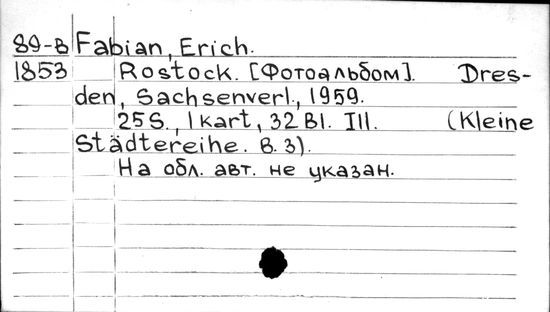 89-В Fabian, Erich.
1853 Rostock. [Фотоальбом]. Dres-
den, Sachsenverl., 1959.
25S., 1 kart, 32 Bl. Ill. (Kleine
Städtereihe. B. 3).
На обл. авт. не указан.